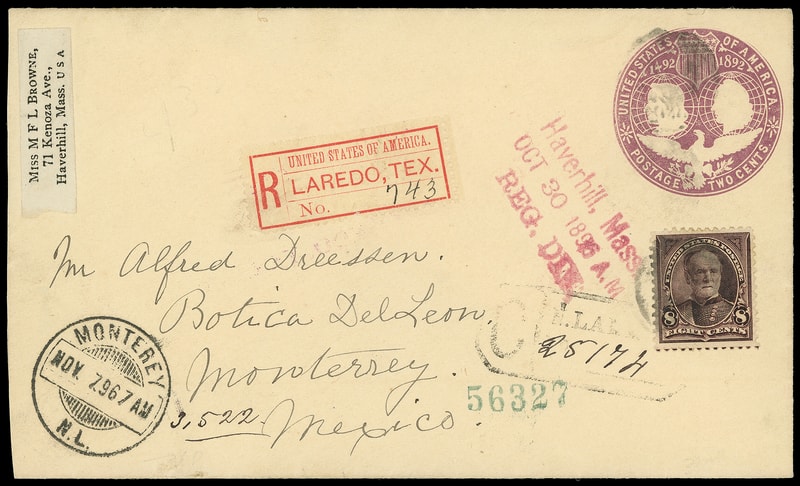 Miss M F L Browne,
71 Kenoza Ave.,
Haverhill, Mass. USA
UNITED STATES OF AMERICA.
R LAREDO, TEX.
No. 743
Haverhill, Mass
OCT 30 1896 A.M
REG. DIV.
UNITED STATES OF AMERICA
1492 1892
POSTAGE TWO CENTS
UNITED STATES POSTAGE
8 8
EIGHT CENTS
Mr Alfred Dreessen.
Botica Del Leon,
Monterrey.
Mexico.
3,522
MONTEREY
NOV. 7.96 7 AM
N.L.
25174
56327